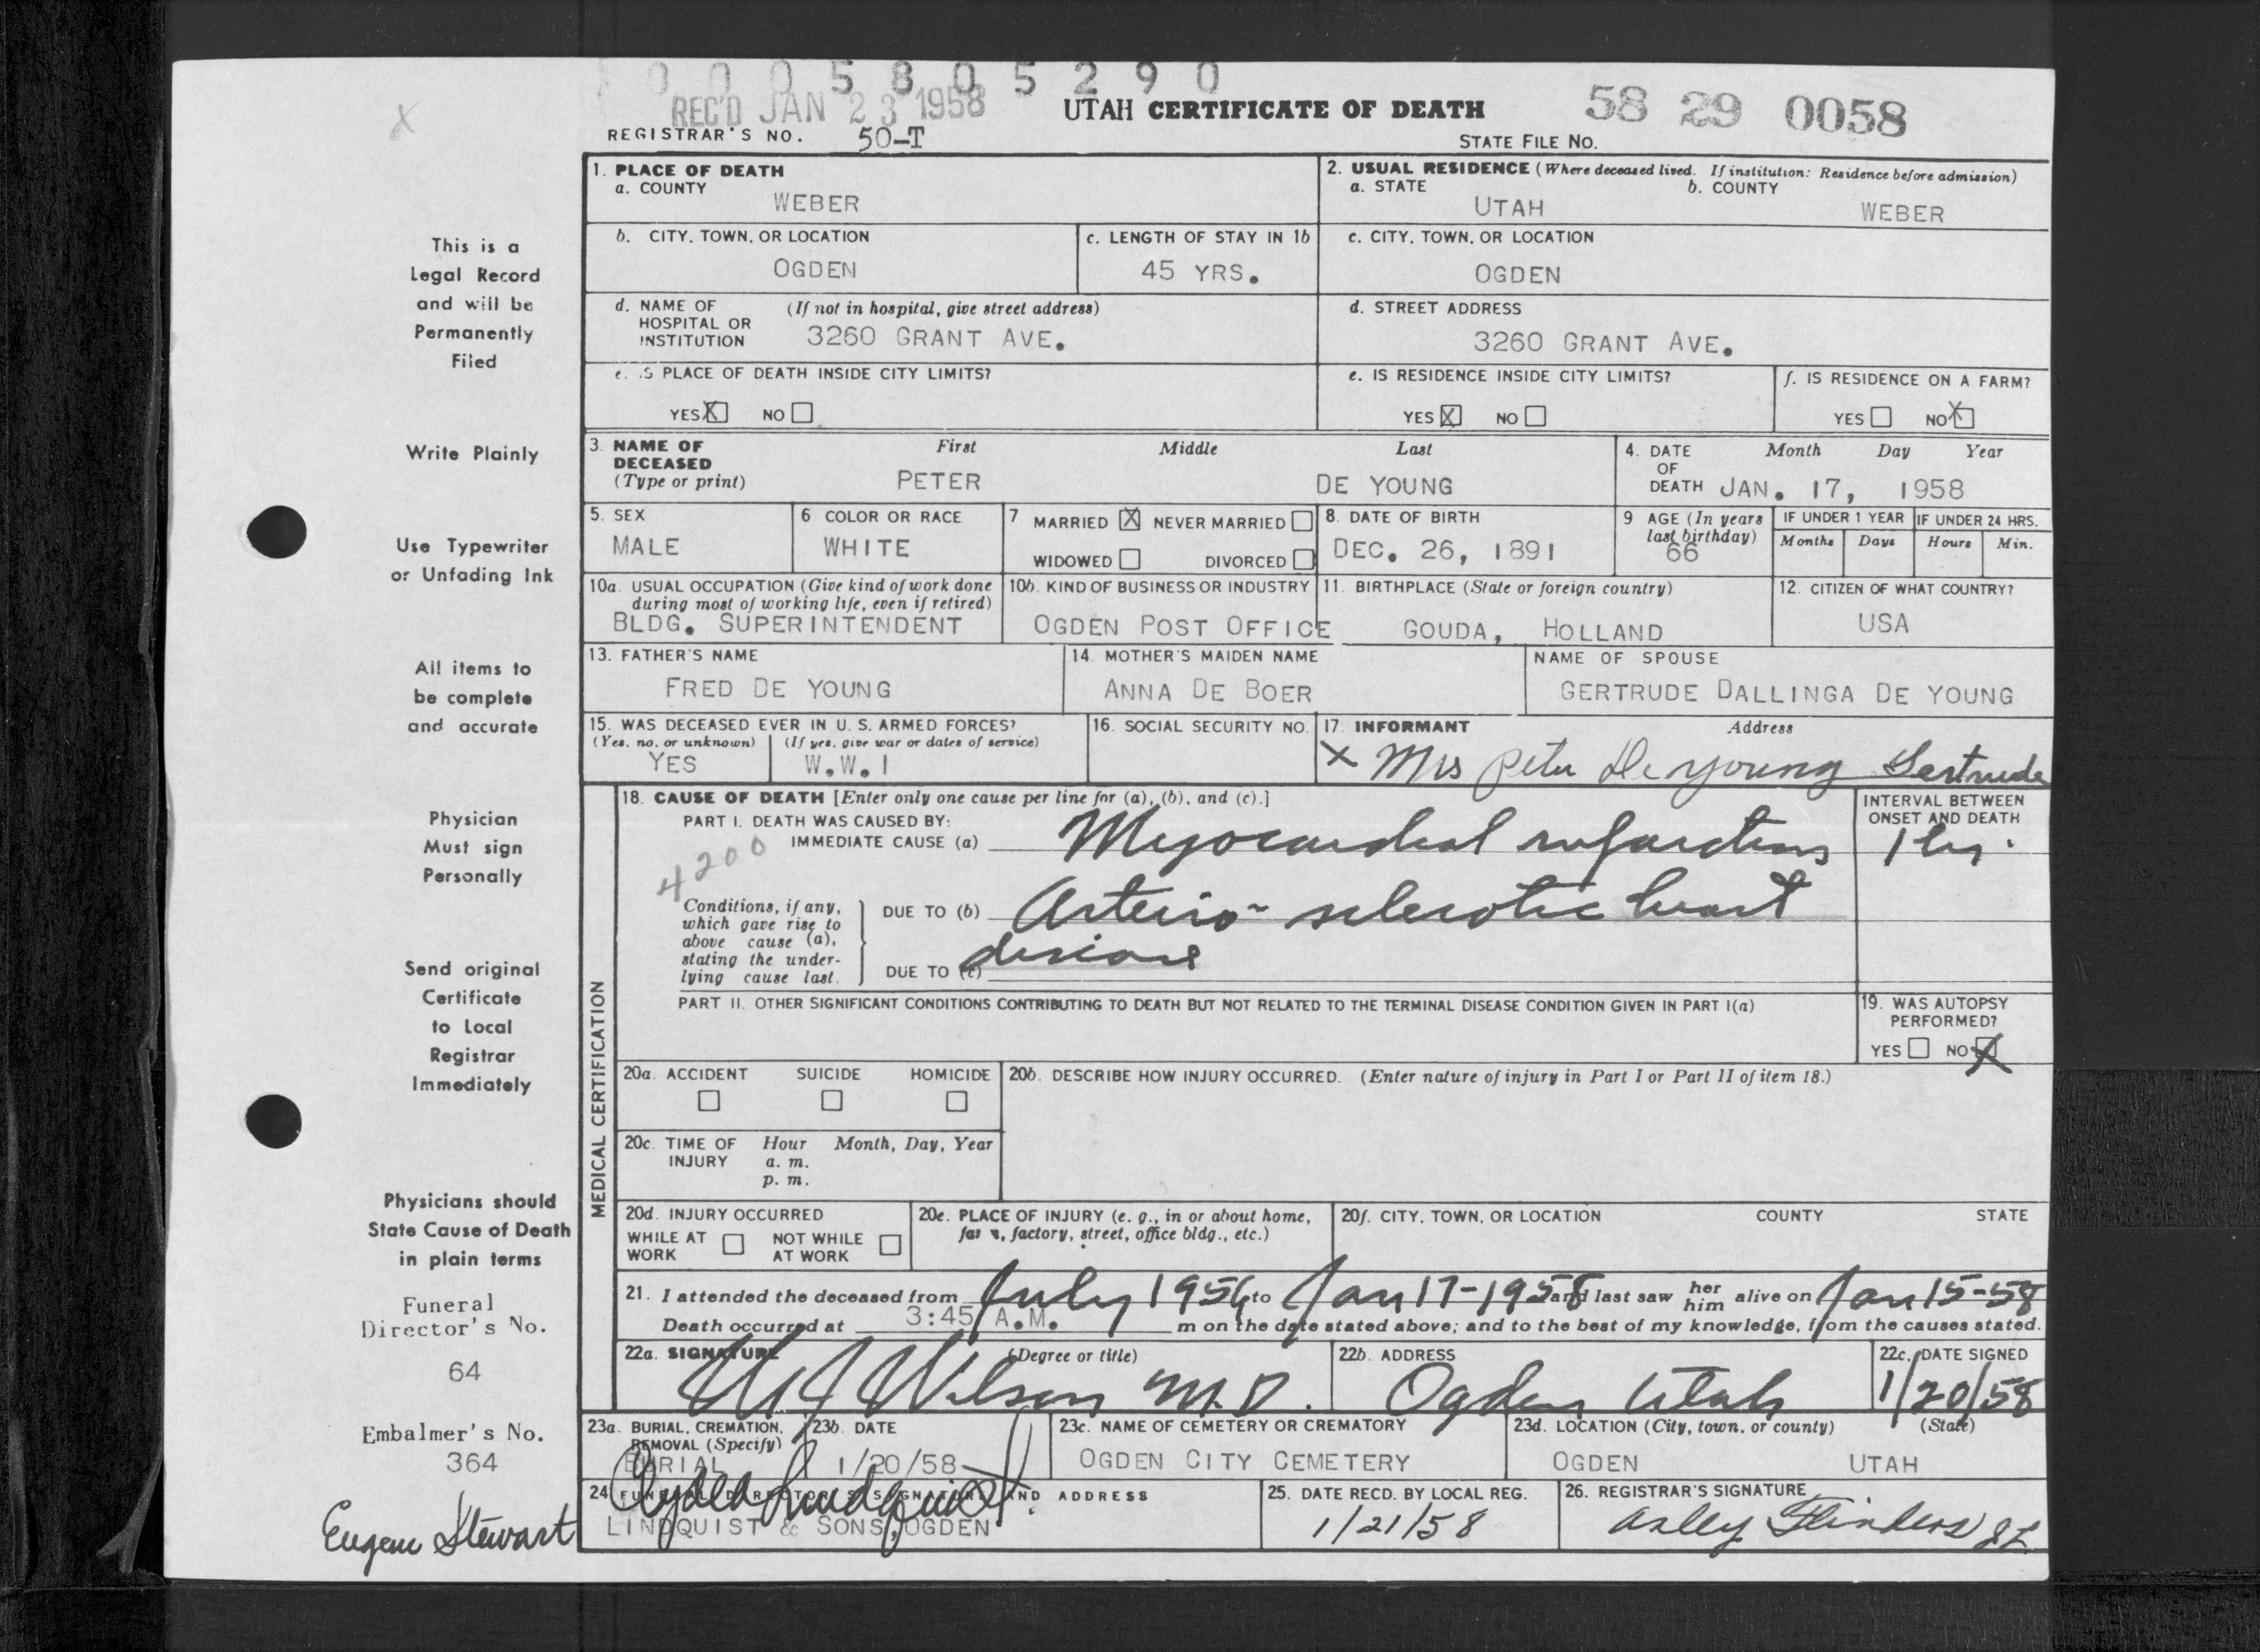 0 0 0 5 8 0 5 2 9 0
REC'D JAN 23 1958
UTAH CERTIFICATE OF DEATH
58 29 0058
REGISTRAR'S NO. 50-T
STATE FILE NO.
X
1. PLACE OF DEATH
a. COUNTY
WEBER
2. USUAL RESIDENCE (Where deceased lived. If institution: Residence before admission)
a. STATE b. COUNTY
UTAH WEBER
b. CITY, TOWN, OR LOCATION
OGDEN
c. LENGTH OF STAY IN 1b
45 YRS.
c. CITY, TOWN, OR LOCATION
OGDEN
d. NAME OF HOSPITAL OR INSTITUTION (If not in hospital, give street address)
3260 GRANT AVE.
d. STREET ADDRESS
3260 GRANT AVE.
e. IS PLACE OF DEATH INSIDE CITY LIMITS?
YES X NO
e. IS RESIDENCE INSIDE CITY LIMITS?
YES X NO
f. IS RESIDENCE ON A FARM?
YES NO X
3. NAME OF DECEASED (Type or print)
First Middle Last
PETER DE YOUNG
4. DATE OF DEATH
Month Day Year
JAN. 17, 1958
5. SEX
MALE
6 COLOR OR RACE
WHITE
7 MARRIED X NEVER MARRIED
WIDOWED DIVORCED
8. DATE OF BIRTH
DEC. 26, 1891
9 AGE (In years last birthday)
66
IF UNDER 1 YEAR
Months Days
IF UNDER 24 HRS.
Hours Min.
10a. USUAL OCCUPATION (Give kind of work done during most of working life, even if retired)
BLDG. SUPERINTENDENT
10b. KIND OF BUSINESS OR INDUSTRY
OGDEN POST OFFICE
11. BIRTHPLACE (State or foreign country)
GOUDA, HOLLAND
12. CITIZEN OF WHAT COUNTRY?
USA
13. FATHER'S NAME
FRED DE YOUNG
14. MOTHER'S MAIDEN NAME
ANNA DE BOER
NAME OF SPOUSE
GERTRUDE DALLINGA DE YOUNG
15. WAS DECEASED EVER IN U. S. ARMED FORCES?
(Yes, no, or unknown) (If yes, give war or dates of service)
YES W.W.I
16. SOCIAL SECURITY NO.
17. INFORMANT Address
X Mrs Peter De Young Gertrude
MEDICAL CERTIFICATION
18. CAUSE OF DEATH [Enter only one cause per line for (a), (b), and (c).]
PART I. DEATH WAS CAUSED BY:
IMMEDIATE CAUSE (a) Myocardial infarction
INTERVAL BETWEEN ONSET AND DEATH
1 hr.
4200
Conditions, if any, which gave rise to above cause (a), stating the underlying cause last.
DUE TO (b) Arterio-sclerotic heart
DUE TO (c) disease
PART II. OTHER SIGNIFICANT CONDITIONS CONTRIBUTING TO DEATH BUT NOT RELATED TO THE TERMINAL DISEASE CONDITION GIVEN IN PART I(a)
19. WAS AUTOPSY PERFORMED?
YES NO X
20a. ACCIDENT SUICIDE HOMICIDE
20b. DESCRIBE HOW INJURY OCCURRED. (Enter nature of injury in Part I or Part II of item 18.)
20c. TIME OF INJURY
Hour Month, Day, Year
a. m.
p. m.
20d. INJURY OCCURRED
WHILE AT WORK NOT WHILE AT WORK
20e. PLACE OF INJURY (e. g., in or about home, farm, factory, street, office bldg., etc.)
20f. CITY, TOWN, OR LOCATION COUNTY STATE
21. I attended the deceased from July 1956 to Jan 17-1958 and last saw her him alive on Jan 15-58
Death occurred at 3:45 A.M. m on the date stated above; and to the best of my knowledge, from the causes stated.
22a. SIGNATURE (Degree or title)
Wilson M.D.
22b. ADDRESS
Ogden Utah
22c. DATE SIGNED
1/20/58
23a. BURIAL, CREMATION, REMOVAL (Specify)
BURIAL
23b. DATE
1/20/58
23c. NAME OF CEMETERY OR CREMATORY
OGDEN CITY CEMETERY
23d. LOCATION (City, town, or county) (State)
OGDEN UTAH
24 FUNERAL DIRECTOR'S SIGNATURE AND ADDRESS
Lindquist
LINDQUIST & SONS, OGDEN
25. DATE RECD. BY LOCAL REG.
1/21/58
26. REGISTRAR'S SIGNATURE
Flinders
This is a
Legal Record
and will be
Permanently
Filed
Write Plainly
Use Typewriter
or Unfading Ink
All items to
be complete
and accurate
Physician
Must sign
Personally
Send original
Certificate
to Local
Registrar
Immediately
Physicians should
State Cause of Death
in plain terms
Funeral
Director's No.
64
Embalmer's No.
364
Eugene Stewart